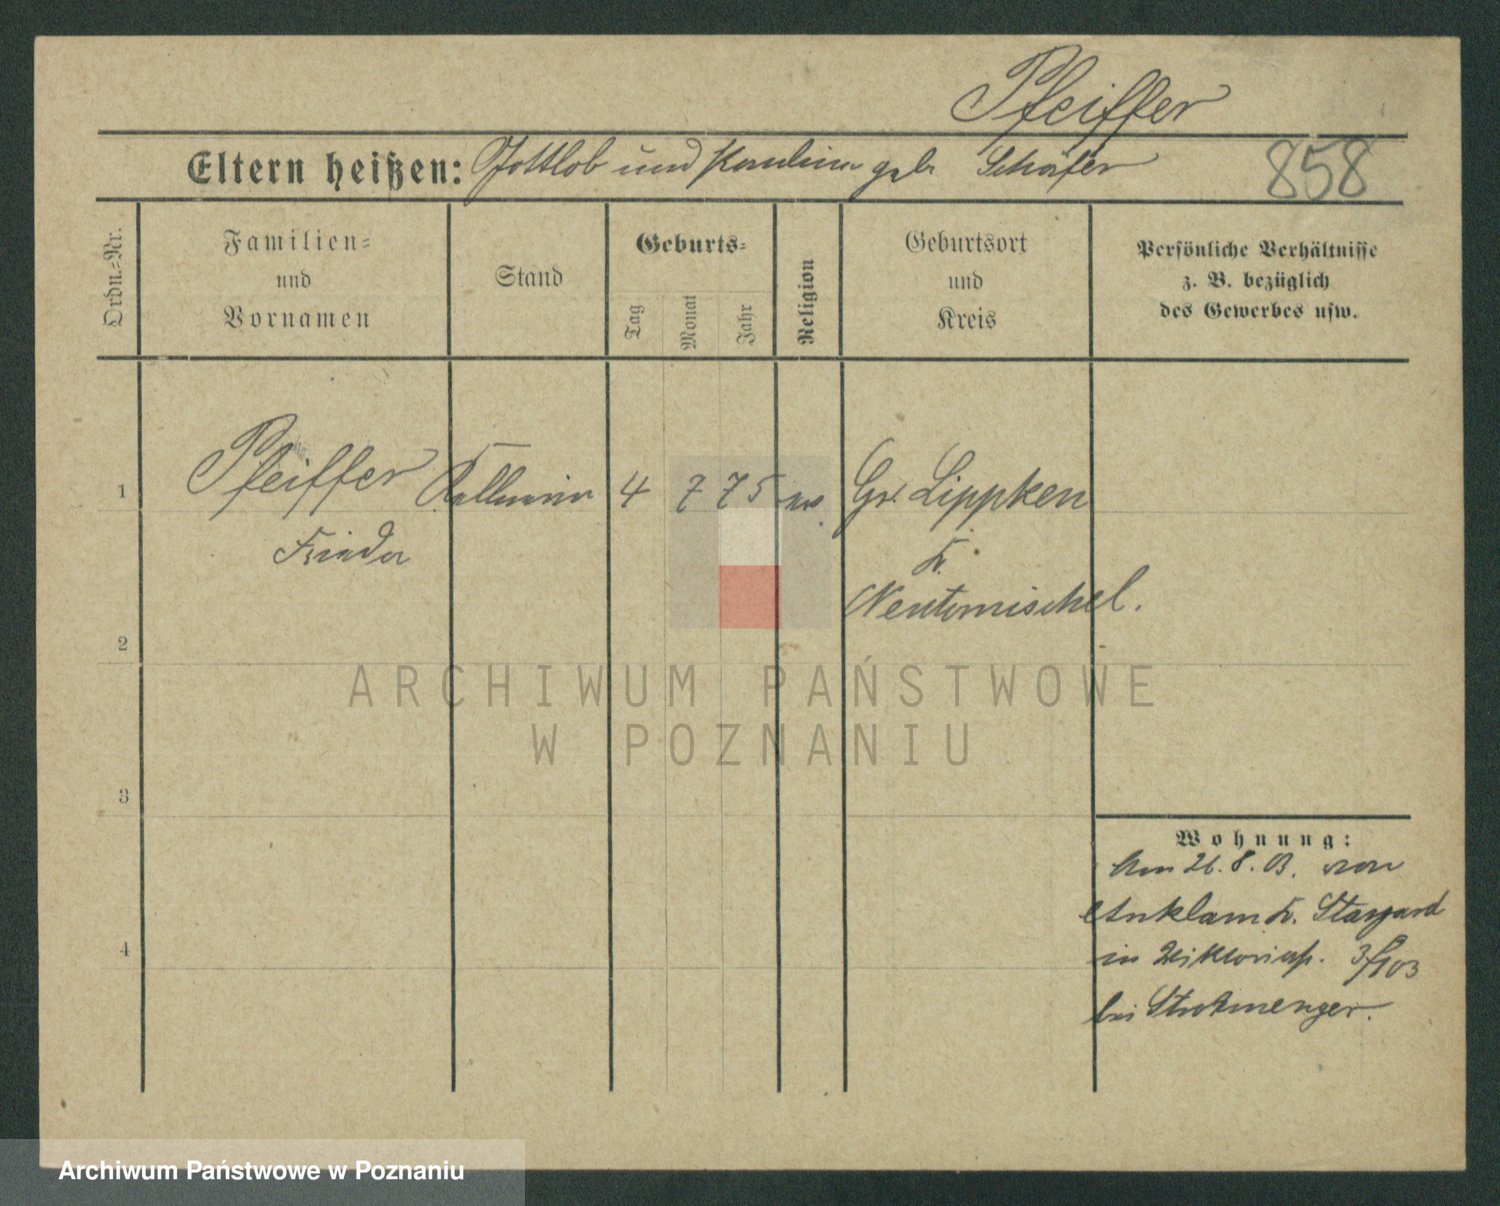 Pfeiffer
Eltern heißen: Gottlob und Paulina geb. Schäfer
858
Ordn.=Nr.
Familien=
und
Vornamen
Stand
Geburts=
Tag
Monat
Jahr
Religion
Geburtsort
und
Kreis
Persönliche Verhältnisse
z. B. bezüglich
des Gewerbes usw.
1
Pfeiffer
Frieda
Kellnerin
4 7 75
ev.
Gr. Lippken
K.
Neutomischel.
2
3
4
Wohnung:
Am 26. 8. 03. von
Anklam K. Stargard
in Viktoriastr.
bei Strohmenger.
ARCHIWUM PAŃSTWOWE
W POZNANIU
Archiwum Państwowe w Poznaniu